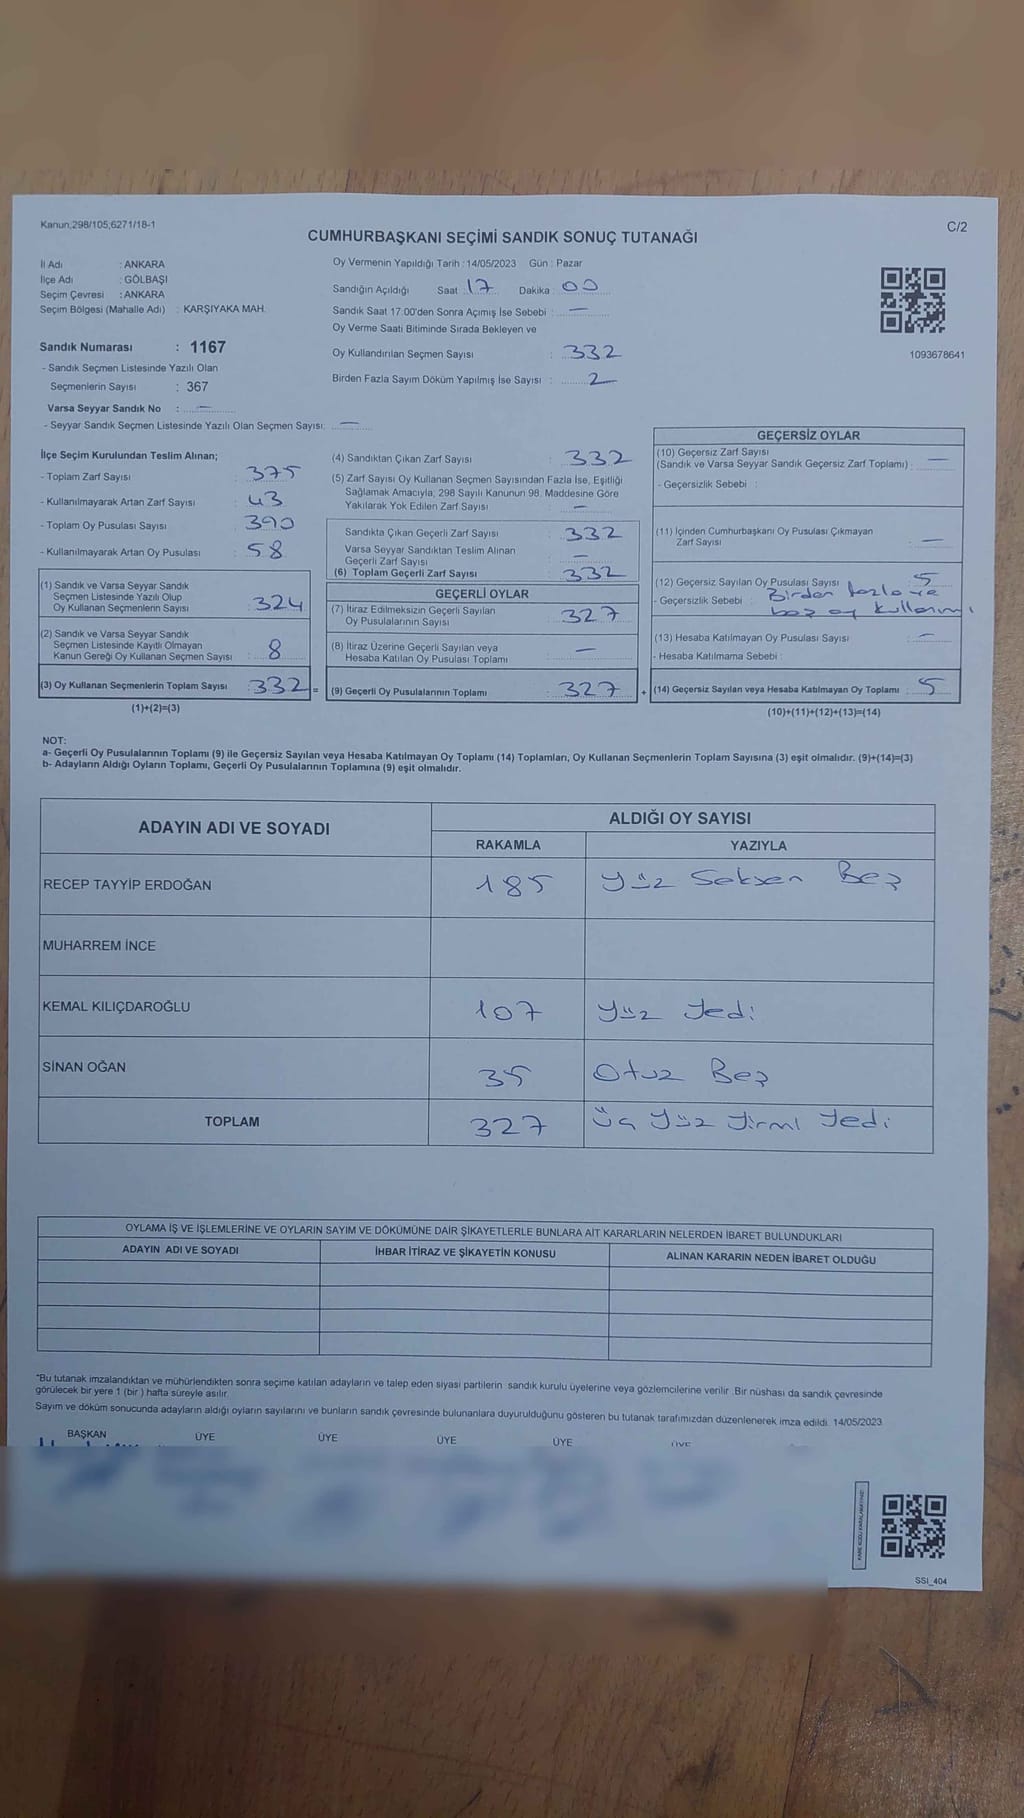 Kanun;298/105;6271/18-1
C/2
CUMHURBAŞKANI SEÇİMİ SANDIK SONUÇ TUTANAĞI
İl Adı : ANKARA
İlçe Adı : GÖLBAŞI
Seçim Çevresi : ANKARA
Seçim Bölgesi (Mahalle Adı) : KARŞIYAKA MAH.
Sandık Numarası : 1167
- Sandık Seçmen Listesinde Yazılı Olan
Seçmenlerin Sayısı : 367
Varsa Seyyar Sandık No : —
- Seyyar Sandık Seçmen Listesinde Yazılı Olan Seçmen Sayısı: —
Oy Vermenin Yapıldığı Tarih : 14/05/2023 Gün : Pazar
Sandığın Açıldığı Saat 17 Dakika : 00
Sandık Saat 17:00'den Sonra Açımış İse Sebebi : —
Oy Verme Saati Bitiminde Sırada Bekleyen ve
Oy Kullandırılan Seçmen Sayısı : 332
Birden Fazla Sayım Döküm Yapılmış İse Sayısı : 2
1093678641
İlçe Seçim Kurulundan Teslim Alınan;
- Toplam Zarf Sayısı : 375
- Kullanılmayarak Artan Zarf Sayısı : 43
- Toplam Oy Pusulası Sayısı : 390
- Kullanılmayarak Artan Oy Pusulası : 58
(1) Sandık ve Varsa Seyyar Sandık
Seçmen Listesinde Yazılı Olup
Oy Kullanan Seçmenlerin Sayısı : 324
(2) Sandık ve Varsa Seyyar Sandık
Seçmen Listesinde Kayıtlı Olmayan
Kanun Gereği Oy Kullanan Seçmen Sayısı : 8
(3) Oy Kullanan Seçmenlerin Toplam Sayısı : 332 =
(1)+(2)=(3)
(4) Sandıktan Çıkan Zarf Sayısı : 332
(5) Zarf Sayısı Oy Kullanan Seçmen Sayısından Fazla İse, Eşitliği
Sağlamak Amacıyla, 298 Sayılı Kanunun 98. Maddesine Göre
Yakılarak Yok Edilen Zarf Sayısı : —
Sandıkta Çıkan Geçerli Zarf Sayısı : 332
Varsa Seyyar Sandıktan Teslim Alınan
Geçerli Zarf Sayısı : —
(6) Toplam Geçerli Zarf Sayısı : 332
GEÇERLİ OYLAR
(7) İtiraz Edilmeksizin Geçerli Sayılan
Oy Pusulalarının Sayısı : 327
(8) İtiraz Üzerine Geçerli Sayılan veya
Hesaba Katılan Oy Pusulası Toplamı : —
(9) Geçerli Oy Pusulalarının Toplamı : 327 +
GEÇERSİZ OYLAR
(10) Geçersiz Zarf Sayısı
(Sandık ve Varsa Seyyar Sandık Geçersiz Zarf Toplamı) : —
- Geçersizlik Sebebi :
(11) İçinden Cumhurbaşkanı Oy Pusulası Çıkmayan
Zarf Sayısı : —
(12) Geçersiz Sayılan Oy Pusulası Sayısı : 5
- Geçersizlik Sebebi : Birden fazla ve
boş oy kullanımı
(13) Hesaba Katılmayan Oy Pusulası Sayısı : —
- Hesaba Katılmama Sebebi :
(14) Geçersiz Sayılan veya Hesaba Katılmayan Oy Toplamı : 5
(10)+(11)+(12)+(13)=(14)
NOT:
a- Geçerli Oy Pusulalarının Toplamı (9) ile Geçersiz Sayılan veya Hesaba Katılmayan Oy Toplamı (14) Toplamları, Oy Kullanan Seçmenlerin Toplam Sayısına (3) eşit olmalıdır. (9)+(14)=(3)
b- Adayların Aldığı Oyların Toplamı, Geçerli Oy Pusulalarının Toplamına (9) eşit olmalıdır.
ADAYIN ADI VE SOYADI
ALDIĞI OY SAYISI
RAKAMLA YAZIYLA
RECEP TAYYİP ERDOĞAN 185 Yüz Seksen Beş
MUHARREM İNCE
KEMAL KILIÇDAROĞLU 107 Yüz Yedi
SİNAN OĞAN 35 Otuz Beş
TOPLAM 327 Üç Yüz Yirmi Yedi
OYLAMA İŞ VE İŞLEMLERİNE VE OYLARIN SAYIM VE DÖKÜMÜNE DAİR ŞİKAYETLERLE BUNLARA AİT KARARLARIN NELERDEN İBARET BULUNDUKLARI
ADAYIN ADI VE SOYADI İHBAR İTİRAZ VE ŞİKAYETİN KONUSU ALINAN KARARIN NEDEN İBARET OLDUĞU
*Bu tutanak imzalandıktan ve mühürlendikten sonra seçime katılan adayların ve talep eden siyasi partilerin sandık kurulu üyelerine veya gözlemcilerine verilir. Bir nüshası da sandık çevresinde
görülecek bir yere 1 (bir ) hafta süreyle asılır.
Sayım ve döküm sonucunda adayların aldığı oyların sayılarını ve bunların sandık çevresinde bulunanlara duyurulduğunu gösteren bu tutanak tarafımızdan düzenlenerek imza edildi. 14/05/2023
BAŞKAN ÜYE ÜYE ÜYE ÜYE ÜYE
KARE KODU KARALAMAYINIZ!
SSI_404